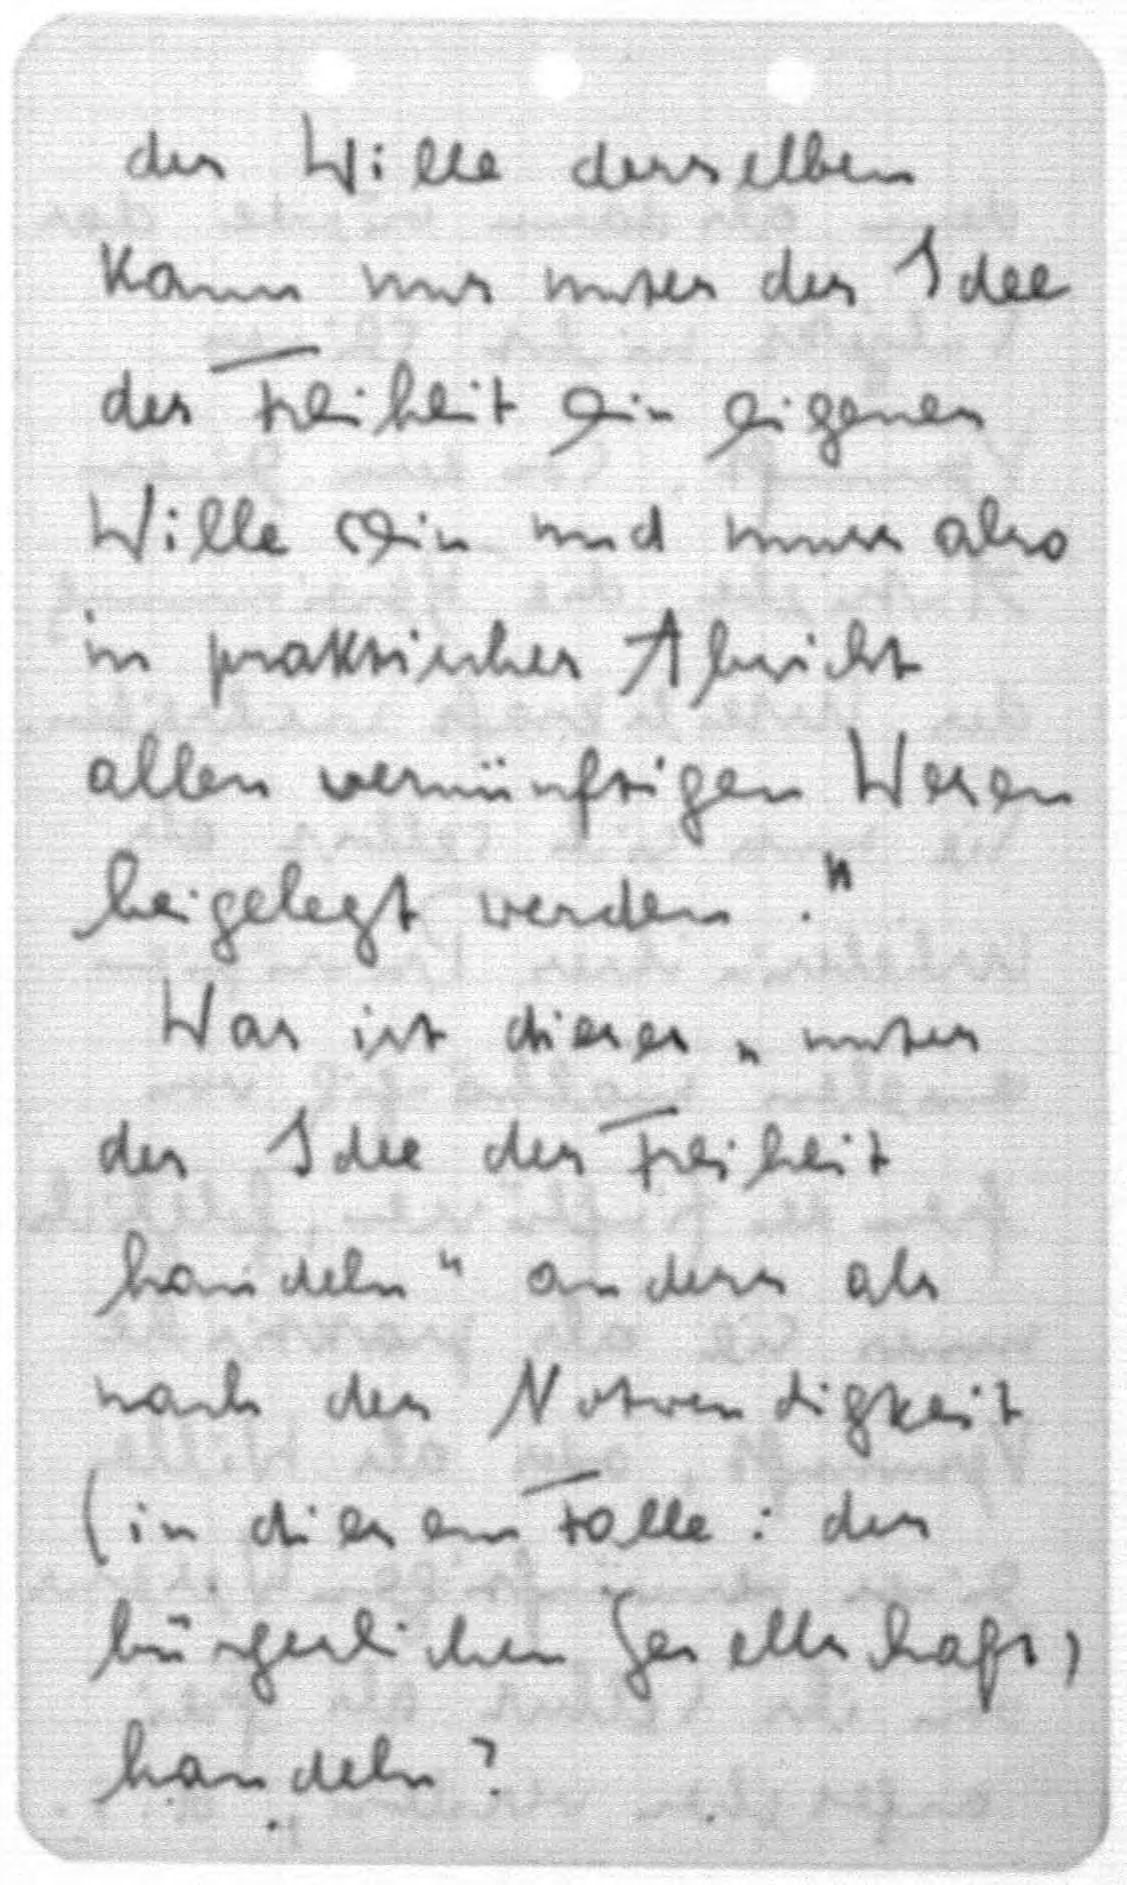 der Wille desselben
kann nur unter der Idee
der Freiheit ein eigener
Wille sein und muss also
in praktischer Absicht
allen vernünftigen Wesen
beigelegt werden."
Was ist dieses „unter
der Idee der Freiheit
handeln" anders als
nach der Notwendigkeit
(in diesem Falle: der
bürgerlichen Gesellschaft)
handeln?